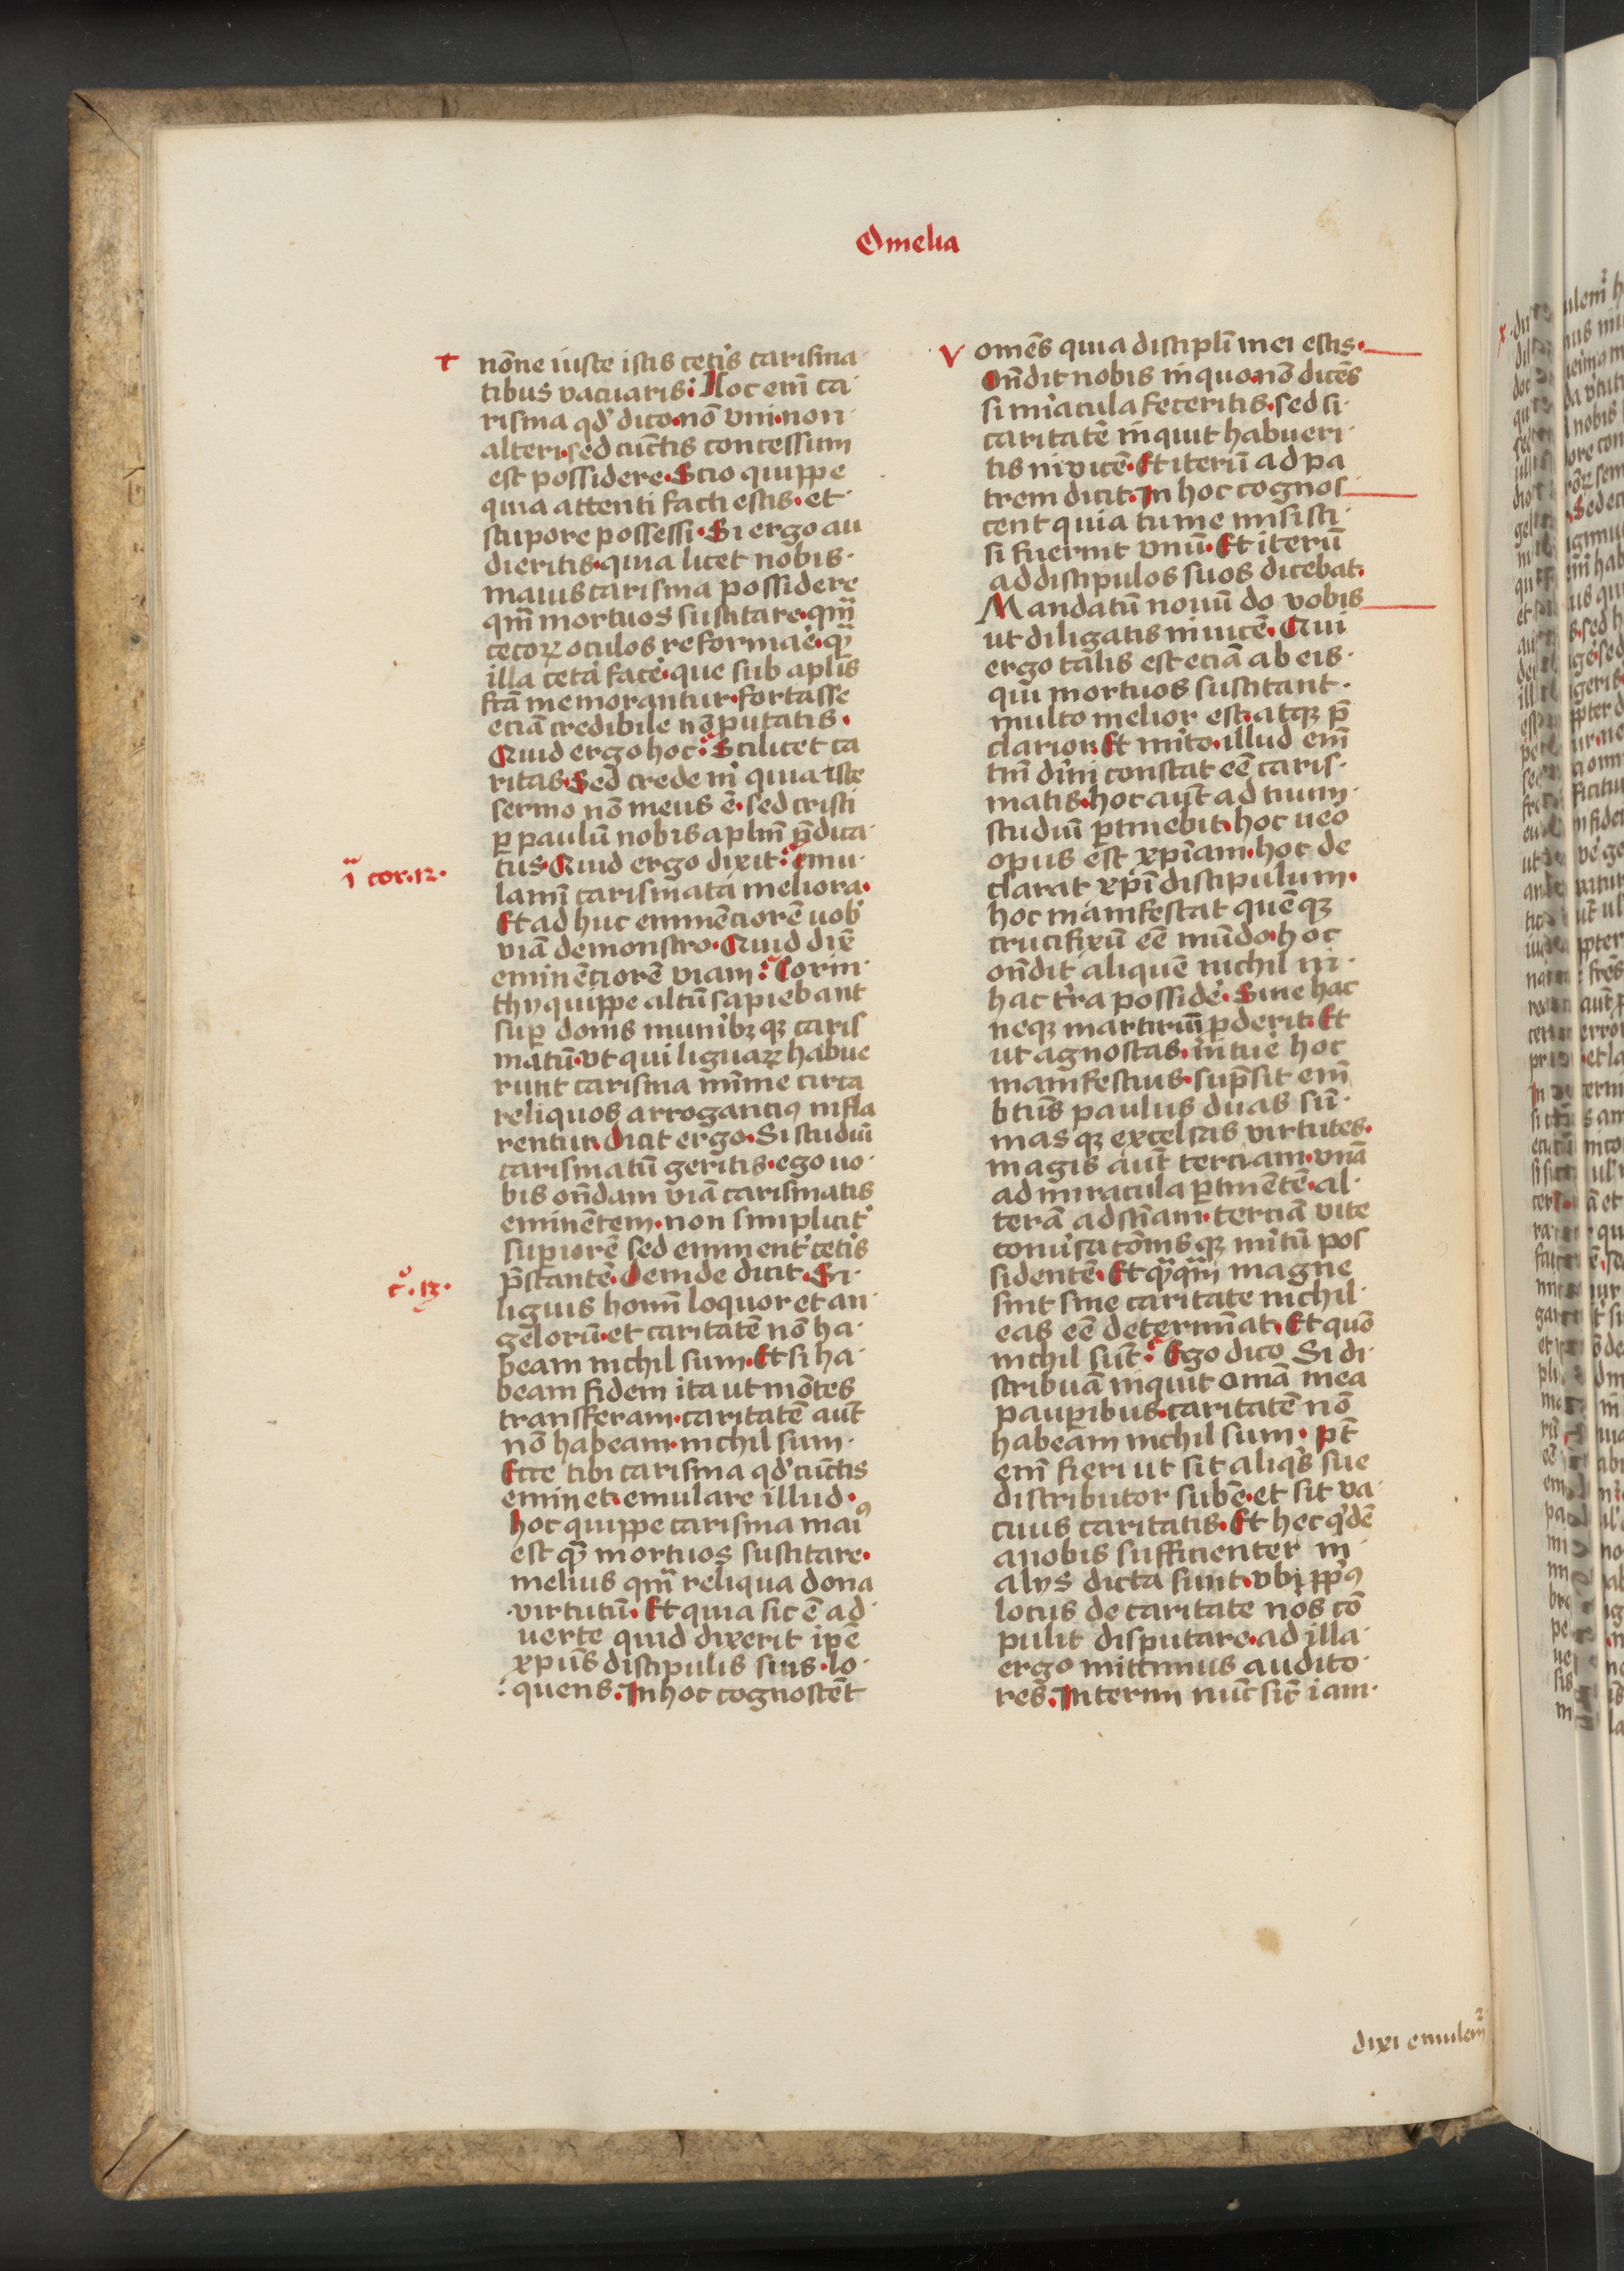 Omelia
t
nōne iuste istis cetis carisma
tibus vacuaris: Hoc eni̅ ca
risma qd' dico·nō vni·non
alteri·sed cūctis concessum
est possidere·Scio quippe
quia attenti facti estis·et
stupore possessi·Si ergo au
dieritis·quia licet nobis·
maius carisma possidere
qm̅ mortuos suscitare·qm̅
cecoꝝ oculos reformaē·qꝫ
illa cet̄a facē·que sub aplīs
fc̄a memorantur·fortasse
eciā credibile nō putatis·
Quid ergo hoc: Scilicet ca
ritas·Sed crede mi quia iste
sermo nō meus ē·sed cristi
ꝑ paulū nobis aplīm p̄dica
tus·Quid ergo dixit: Emu
i cor·12·
lami̅ carismata meliora·
Et ad huc eminēciorē uob'
viā demonstro·Quid diē
eminēciorē viam: Corin
thy quippe altū sapiebant
suꝑ donis munibꝫ qꝫ caris
matū·vt qui liguaꝝ habue
runt carisma mīme circa
reliquos arrogancius infla
rentur·Dicit ergo·Si studiū
carismatū geritis·ego uo
bis on̄dam viā carismatis
eminētem·non simplicit'
suꝑiorē sed eminent' cetis
p̄stantē·Deinde dicit·Si
c°·13·
liguis homi̅ loquor et an
gelorū·et caritatē nō ha
beam nichil sum·Et si ha
beam fidem ita ut mōtes
transferam·caritatē aūt
nō habeam·nichil sum·
Ecce tibi carisma qd' cūctis
eminet·emulare illud·
hoc quippe carisma maiꝰ
est qꝫ mortuos suscitare·
melius qm̅ reliqua dona
virtutū·Et quia sic ē ad
uerte quid dixerit ip̄e
xp̄us discipulis suis·lo
quens·In hoc cognoscēt
v
omēs quia discipli̅ mei estis·
On̄dit nobis in quo·nō dicēs
si mi'acula feceritis·sed si
caritatē inquit habueri
tis ni vicē·Et iterū ad pa
trem dicit·In hoc cognos
cent quia tu me misisti
si fuerint vnū·Et iterū
ad discipulos suos dicebat·
Mandatū nouū do vobis
ut diligatis inuicē·Qui
ergo talis est eciā ab eis
qui mortuos suscitant·
multo melior est·atqꝫ p̄
clarior·Et mi'to·illud eni̅
tm̅ dīni constat eē caris
matis·hoc aūt ad tuum
studiū ꝑtinebit·hoc ueō
opus est xp̄iam·hoc de
clarat xp̄i discipulum·
hoc manifestat quēqꝫ
crucifixū eē mūdo·hoc
on̄dit aliquē nichil in
hac t'ra possidē·Sine hac
neqꝫ martiriū ꝓderit·Et
ut agnoscas·in tue hoc
manifestius·supsit eni̅
btūs paulus duas sū
mas qꝫ excelsas virtutes·
magis aūt terciam·vnā
ad miracula ꝑtinētē·al
terā ad sciām·terciā vite
conu'sacōnis qꝫ mi'tū pos
sidentē·Et qꝫqm̅ magne
sint sine caritate nichil
eas eē determinat·Et quō
nichil sūt: Ego dico Si di
stribuā inquit omā mea
pauꝑibus·caritatē nō
habeam nichil sum·Pt̄
eni̅ fieri ut sit aliqs sue
distributor subē·et sit va
cuus caritatis·Et hec q'dē
a nobis sufficienter in
alys dicta sunt·vbi ꝓpꝰ
locus de caritate nos cō
pulit disputare·ad illa
ergo mittimus audito
res·Interim nūc sic iam
dixi emulem̅